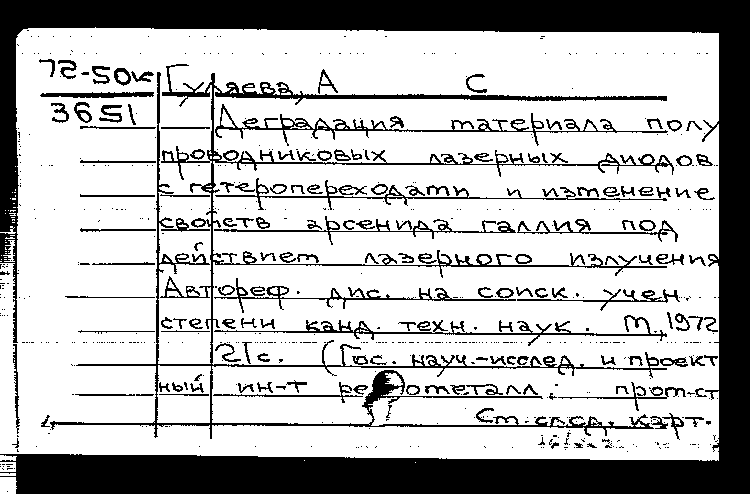 72-50к Гуляева, А С
3651 Деградация материала полу
проводниковых лазерных диодов
с гетеропереходами и изменение
свойств арсенида галлия под
действием лазерного излучения
Автореф. дис. на соиск. учен.
степени канд. техн. наук. М., 1972
21с. (Гос. науч.-исслед. и проект
ный ин-т редкометалл. пром-ст
См. след. карт.